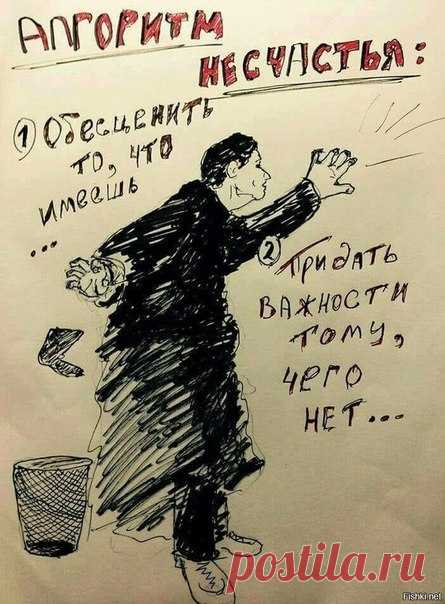 АЛГОРИТМ
НЕСЧАСТЬЯ:
① Обесценить
то, что
имеешь
...
② Придать
важности
тому,
чего
нет...
postila.ru
Fishki.net